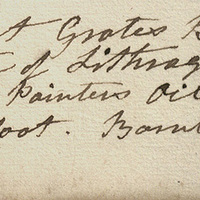 t Grates B
of Lithrag
Painters Oil
oot. Barn